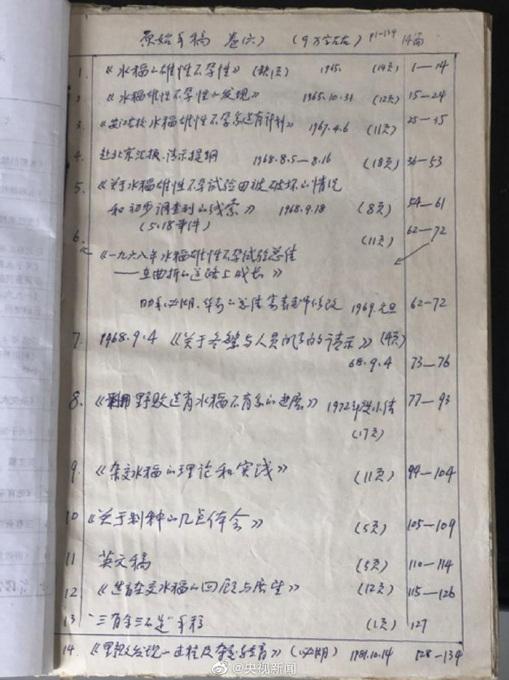 原始手稿 卷(六) (9万字左右) P1-134 14篇
1. 《水稻的雄性不孕性》(缺1页) 1965. (14页) 1—14
2. 《水稻雄性不孕性的发现》 1965.10.31 (12页) 15—24
3. 《安江农校水稻雄性不孕系选育计划》 1967.4.6 (11页) 25—35
4. 赴北京汇报、请示提纲 1968.8.5—8.16 (18页) 36—53
5. 《关于水稻雄性不孕试验田被破坏的情况
和初步调查到的线索》 1968.9.18 (8页) 54—61
(5.18事件)
6. (11页) 62—72
《一九六八年水稻雄性不孕试验总结
——在曲折的道路上成长》
修改 1969.元旦 62—72
7. 1968.9.4 《关于冬繁与人员的请示》(4页)
68.9.4 73—76
8. 《利用野败选育水稻不育系的进展》 1972年 77—93
(17页)
9. 《杂交水稻的理论和实践》 (11页) 99—104
10 《关于制种的几点体会》 (5页) 105—109
11 英文稿 (5页) 110—114
12 《选育杂交水稻的回顾与展望》 (12页) 115—126
13 "三有余三不足"手稿 (1页) 127
14. 《野败发现 过程及 》 1981.10.14 128—134
@央视新闻